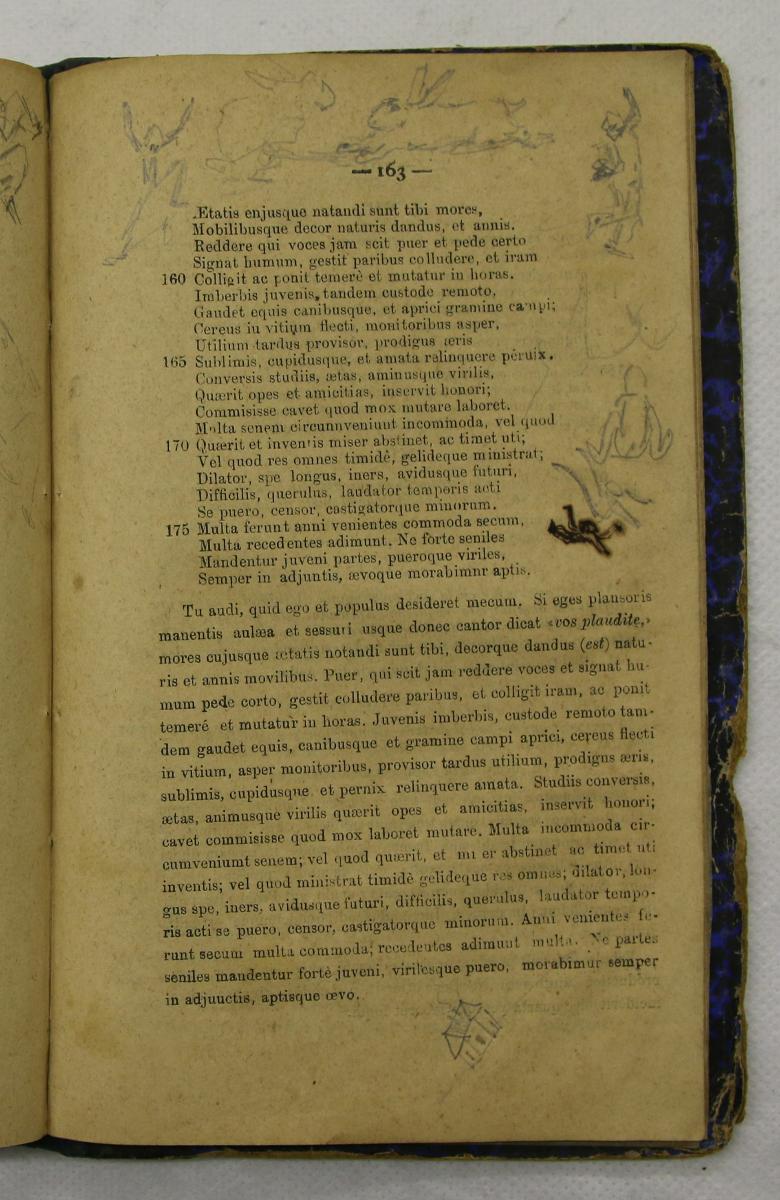 — 163 —
Ætatis enjusque natandi sunt tibi mores,
Mobilibusque decor naturis dandus, et annis.
Reddere qui voces jam scit puer et pede certo
Signat humum, gestit paribus colludere, et iram
160 Colligit ac ponit temerè et mutatur in horas.
Imberbis juvenis, tandem custode remoto,
Gaudet equis canibusque, et aprici gramine campi;
Cereus in vitium flecti, monitoribus asper,
Utilium tardus provisor, prodigus æris
165 Sublimis, cupidusque, et amata relinquere peruix.
Conversis studiis, ætas, aminusque virilis,
Quærit opes et amicitias, inservit honori;
Commisisse cavet quod mox mutare laboret.
Molta senem circunveniunt incommoda, vel quod
170 Quærit et inventis miser abstinet, ac timet uti;
Vel quod res omnes timidê, gelideque ministrat;
Dilator, spe longus, iners, avidusque futuri,
Difficilis, querulus, laudator temporis acti
Se puero, censor, castigatorque minorum.
175 Multa ferunt anni venientes commoda secum,
Multa recedentes adimunt. Ne forte seniles
Mandentur juveni partes, pueroque viriles,
Semper in adjuntis, ævoque morabimnr aptis.
Tu audi, quid ego et populus desideret mecum. Si eges plansoris
manentis aulæa et sessuri usque donec cantor dicat «vos plaudite,»
mores cujusque ætatis notandi sunt tibi, decorque dandus (est) natu-
ris et annis movilibus. Puer, qui scit jam reddere voces et signat hu-
mum pede corto, gestit colludere paribus, et colligit iram, ac ponit
temeré et mutatur in horas. Juvenis imberbis, custode remoto tam-
dem gaudet equis, canibusque et gramine campi aprici, cereus flecti
in vitium, asper monitoribus, provisor tardus utilium, prodigus æris,
sublimis, cupidusque et pernix relinquere amata. Studiis conversis,
ætas, animusque virilis quærit opes et amicitias, inservit honori;
cavet commisisse quod mox laboret mutare. Multa incommoda cir-
cumveniumt senem; vel quod quærit, et mi er abstinet ac timet uti
inventis; vel quod ministrat timidè gelideque res omnes; dilator, lon-
gus spe, iners, avidusque futuri, difficilis, querulus, laudator tempo-
ris acti se puero, censor, castigatorque minorum. Anni venientes fe-
runt secum multa commoda; recedeutes adimunt multa. Ne partes
seniles mandentur fortè juveni, virilesque puero, morabimur semper
in adjuuctis, aptisque œvo.